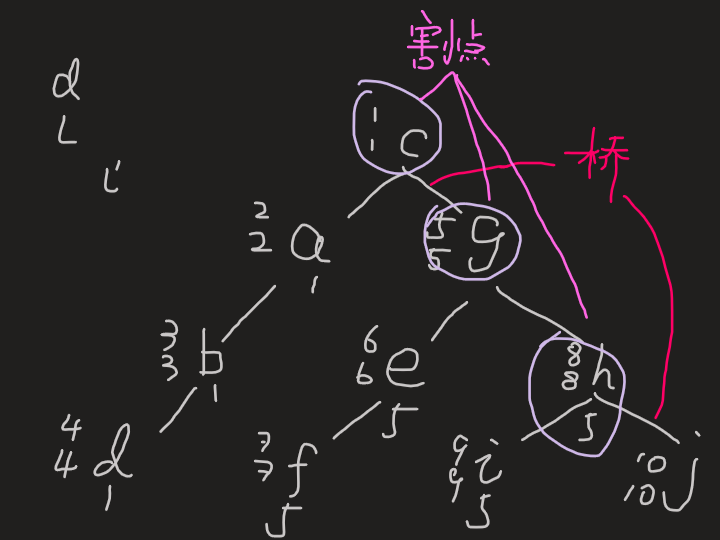 割点
d
L
i
1
1 c
桥
2
2 a
1
5 g
5
3
3 b
1
6
6 e
5
8
8 h
5
4
4 d
1
7
7 f
5
9
9 i
5
10
10 j